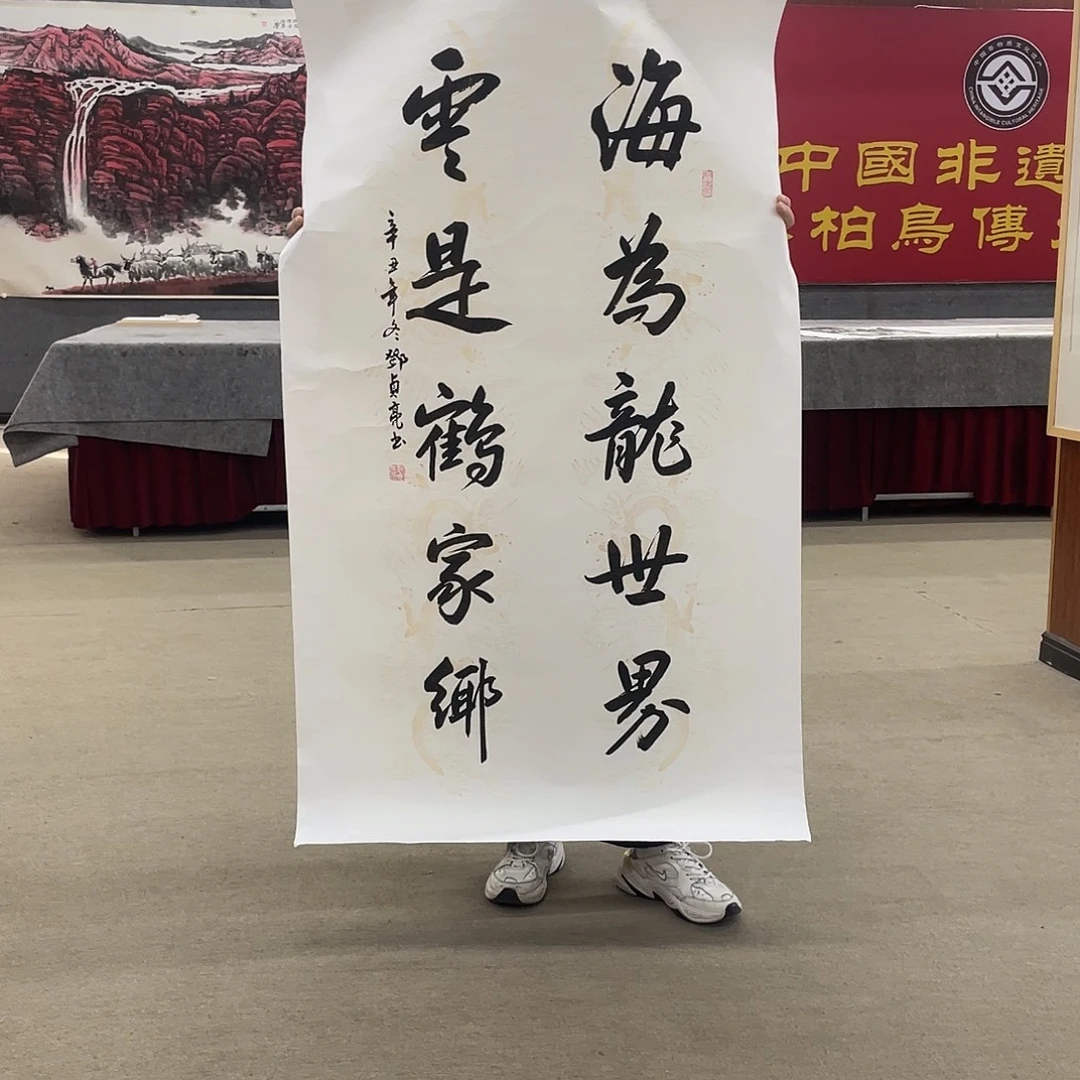 海為龍世界
雲是鶴家鄉
辛丑年冬鄧貞亮书
中國非遺
柏鳥傳
CHINA INTANGIBLE CULTURAL HERITAGE